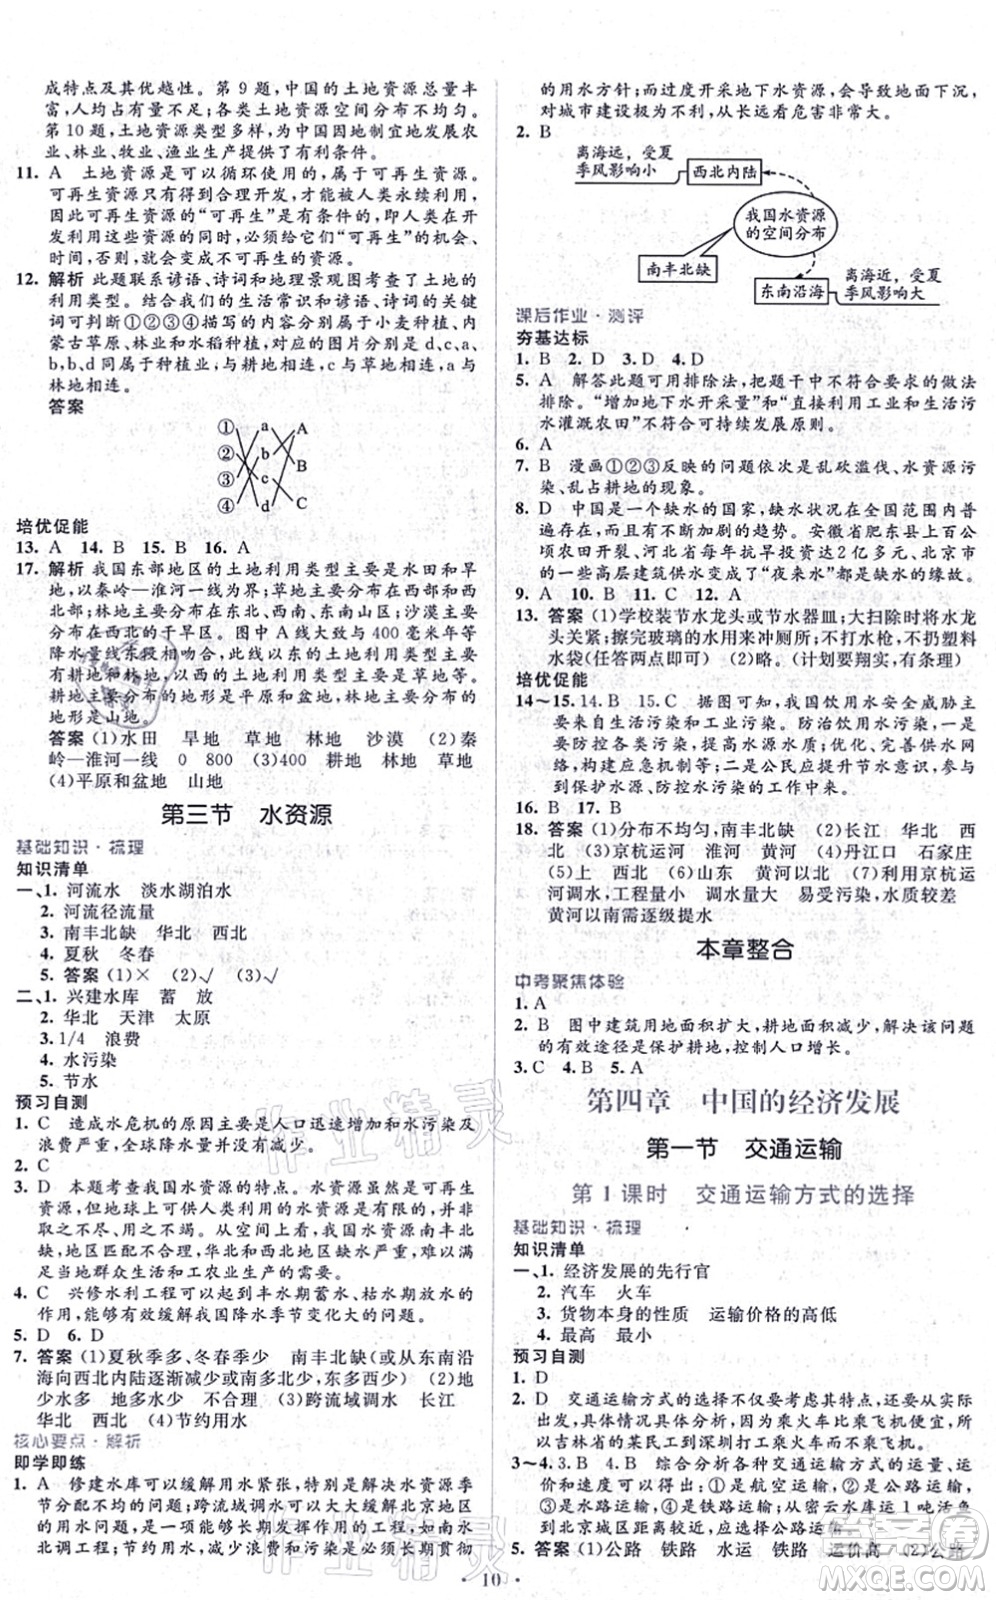 成特点及其优越性。第 9 题,中国的土地资源总量丰
富,人均占有量不足;各类土地资源空间分布不均匀。
第 10 题,土地资源类型多样,为中国因地制宜地发展农
业、林业、牧业、渔业生产提供了有利条件。
11. A 土地资源是可以循环使用的,属于可再生资源。
可再生资源只有得到合理开发,才能被人类永续利用,
因此可再生资源的“可再生”是有条件的,即人类在开发
这些资源的同时,必须给它们“可再生”的机会、
时间,否则,就会变成不可再生的资源。
12. 解析 此题联系谚语、诗词和地理景观图考查了土地的
利用类型。结合我们的生活常识和谚语、诗词的关键
词可判断:①②③④描写的内容分别属于小麦种植、内
蒙古草原、林地和水稻种植,对应的图片分别是 d、c、a、
b,b、d 属于种植业,与耕地相连,c 与草地相连,a 与
林地相连。
答案
① a A
② b
③ c B
④ d C
培优促能
13. A 14. B 15. B 16. A
17. 解析 我国东部地区的土地利用类型主要是水田和旱
地,以秦岭—淮河一线为界;草地主要分布在西部和西
北部;林地主要分布在东北、西南、东南山区;沙漠主要
分布在西北干旱区。图中 A 线大致与 400 毫米年等
降水量线东段相吻合,此线以东的土地利用类型主要
有耕地和林地,以西的土地利用类型主要有草地等。
耕地主要分布的地形是平原和盆地,林地主要分布的
地形是山地。
答案 (1)水田 旱地 草地 林地 沙漠 (2)秦
岭—淮河一线 0 800 (3)400 耕地 林地 草地
(4)平原和盆地 山地
第三节 水资源
基础知识·梳理
知识清单
一、1. 河流水 淡水湖泊水
2. 河流径流量
3. 南丰北缺 华北 西北
4. 夏秋 冬春
5. 答案 (1)× (2)√ (3)√
二、1. 兴建水库 蓄 放
2. 华北 天津 太原
3. 1/4 浪费
4. 水污染
5. 节水
预习自测
1. C 造成水危机的原因主要是人口迅速增长、水污染及
浪费严重,全球降水量并没有减少。
2. C
3. D 本题考查我国水资源的特点。水资源虽然是可再生资
源,但地球上可供人类利用的水资源是有限的,并非
取之不尽、用之不竭。我国水资源南丰北缺,水土资源
地区匹配不合理,华北和西北地区缺水严重,严重影响
当地群众生活和工农业生产的需要。
4. C 兴修水利工程可以起到丰水期蓄水、枯水期放水的
作用,能有效缓解我国降水季节变化大的问题。
5. D 6. D
7. 答案 (1)夏秋季多、冬春季少 南丰北缺(或从东南沿
海向西北内陆逐渐减少或南多北少,东多西少) (2)地
少水多 地多水少 不合理 (3)跨流域调水 长江
华北 西北 (4)节约用水
核心要点·解析
即学即练
1. A 修建水库可以缓解用水紧张,特别是改善水资源季
节分配不均的问题;跨流域调水可以大大缓解北京地区
的用水问题,是能够长期发挥作用的工程,如南水
北调工程;节约用水是解决水资源短缺问题长期坚持
的用水方针;而过度开采地下水资源,会导致地面下沉,
对城市建设极为不利,从长远看危害非常大。
2. B
离海远,受夏
季风影响小
西北内陆
我国水资源
的空间分布
南丰北缺
东南沿海
离海近,受夏
季风影响大
课后作业·测评
夯基达标
1. B 2. D 3. D 4. D
5. A 解答此题可用排除法,把题干中不符合要求的做法
排除。“增加地下水开采量”和“直接利用工业和生活污
水灌溉农田”不符合可持续发展原则。
6. A
7. B 漫画①②③反映的问题依次是乱砍滥伐、水资源污
染、乱占耕地的现象。
8. D 中国是一个缺水的国家,缺水状况在全国范围内普
遍存在,而且有不断加剧的趋势。安徽省肥东县上百公
顷农田开裂、河北省每年抗旱早投资达 2 亿多元、北京市
的一些高层建筑供水变成了“夜来水”都是缺水的缘故。
9. A 10. B 11. C 12. A
13. 答案 (1)学校装节水龙头或节水器皿;大扫除时将水龙
头关紧;擦完玻璃的水用来冲厕所;不打水枪、不扔塑料
水袋(任答两点即可) (2)略。(计划要翔实,有条理)
培优促能
14~15. 14. B 15. C 据图可知,影响饮用水安全威胁主
要来自生活污染和工业污染。防治饮用水污染,一是
要防控各类污染,提高水源水质;二是优化、完善供水网
络,建立应急机制等;三是公民应提升节水意识,参与
到保护水源、防控水污染的工作中来。
16. B 17. B
18. 答案 (1)分布不均匀,南丰北缺 (2)长江 华北 西
北 (3)京杭运河 淮河 黄河 (4)丹江口 石家庄
(5)上 西 北 (6)山东 黄河以北 (7)利用京杭运
河调水,工程量小 调水量大 易受污染,水质较差
黄河以南需逐级提水
本章整合
中考聚焦体验
1. A
2. B 图中建筑用地面积扩大,耕地面积减少,解决该问题
的有效途径是保护耕地、控制人口增长。
3. C 4. B 5. A
第四章 中国的经济发展
第一节 交通运输
第 1 课时 交通运输方式的选择
基础知识·梳理
知识清单
一、1. 经济发展的先行官
2. 汽车 火车
3. 货物本身的性质 运输价格的高低
4. 最高 最小
预习自测
1. D
2. D 交通运输方式的选择不仅要考虑其特点,还应从实际
出发,以省时、省力、省钱为原则。乘火车比乘飞机便宜,所
以吉林省的某民工到深圳打工乘火车而不乘飞机。
3~4. 3. B 4. B 综合分析各种交通运输方式的运量、运
价和速度的高低大小可知:①是航空运输,②是公路运
输,③是水路运输,④是铁路运输;密云水库运 1 吨活鱼
到北京城区路距离较近,且需保活,应选择公路运输。
5. 答案 (1)公路 铁路 水运 铁路 运价高 (2)公路
· 10 ·
作业精灵
作业精灵
答案圈
MXQE.COM